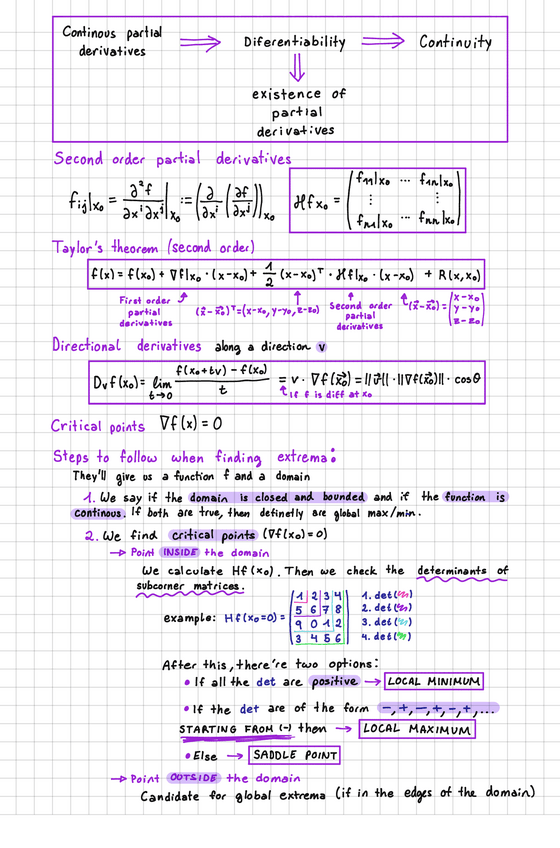 Continous partial
derivatives
⟹ Diferentiability ⟹ Continuity
⇓
existence of
partial
derivatives
Second order partial derivatives
fij|x₀ = ∂²f/∂xⁱ∂xʲ |x₀ := (∂/∂xⁱ (∂f/∂xʲ))x₀
Hfx₀ = ( f₁₁|x₀ ... f₁ₙ|x₀
⋮ ⋮
fₙ₁|x₀ ... fₙₙ|x₀ )
Taylor's theorem (second order)
f(x) = f(x₀) + ∇f|x₀ · (x-x₀) + 1/2 (x-x₀)ᵀ · Hf|x₀ · (x-x₀) + R(x,x₀)
First order
partial
derivatives
(x⃗-x⃗₀)ᵀ=(x-x₀, y-y₀, z-z₀)
Second order
partial
derivatives
(x⃗-x⃗₀) = ( x-x₀
y-y₀
z-z₀ )
Directional derivatives along a direction v
Dᵥf(x₀) = lim t→0 f(x₀+tv) - f(x₀) / t = v · ∇f(x⃗₀) = ||v⃗|| · ||∇f(x⃗₀)|| · cosθ
If f is diff at x₀
Critical points ∇f(x) = 0
Steps to follow when finding extrema:
They'll give us a function f and a domain
1. We say if the domain is closed and bounded and if the function is
continous. If both are true, then definetly are global max/min.
2. We find critical points (∇f(x₀)=0)
→ Point INSIDE the domain
We calculate Hf(x₀). Then we check the determinants of
subcorner matrices.
example: Hf(x₀=0) =
1 2 3 4
5 6 7 8
9 0 1 2
3 4 5 6
1. det( )
2. det( )
3. det( )
4. det( )
After this, there're two options:
• If all the det are positive → LOCAL MINIMUM
• If the det are of the form -,+,-,+,-,+,...
STARTING FROM (-) then → LOCAL MAXIMUM
• Else → SADDLE POINT
→ Point OUTSIDE the domain
Candidate for global extrema (if in the edges of the domain)